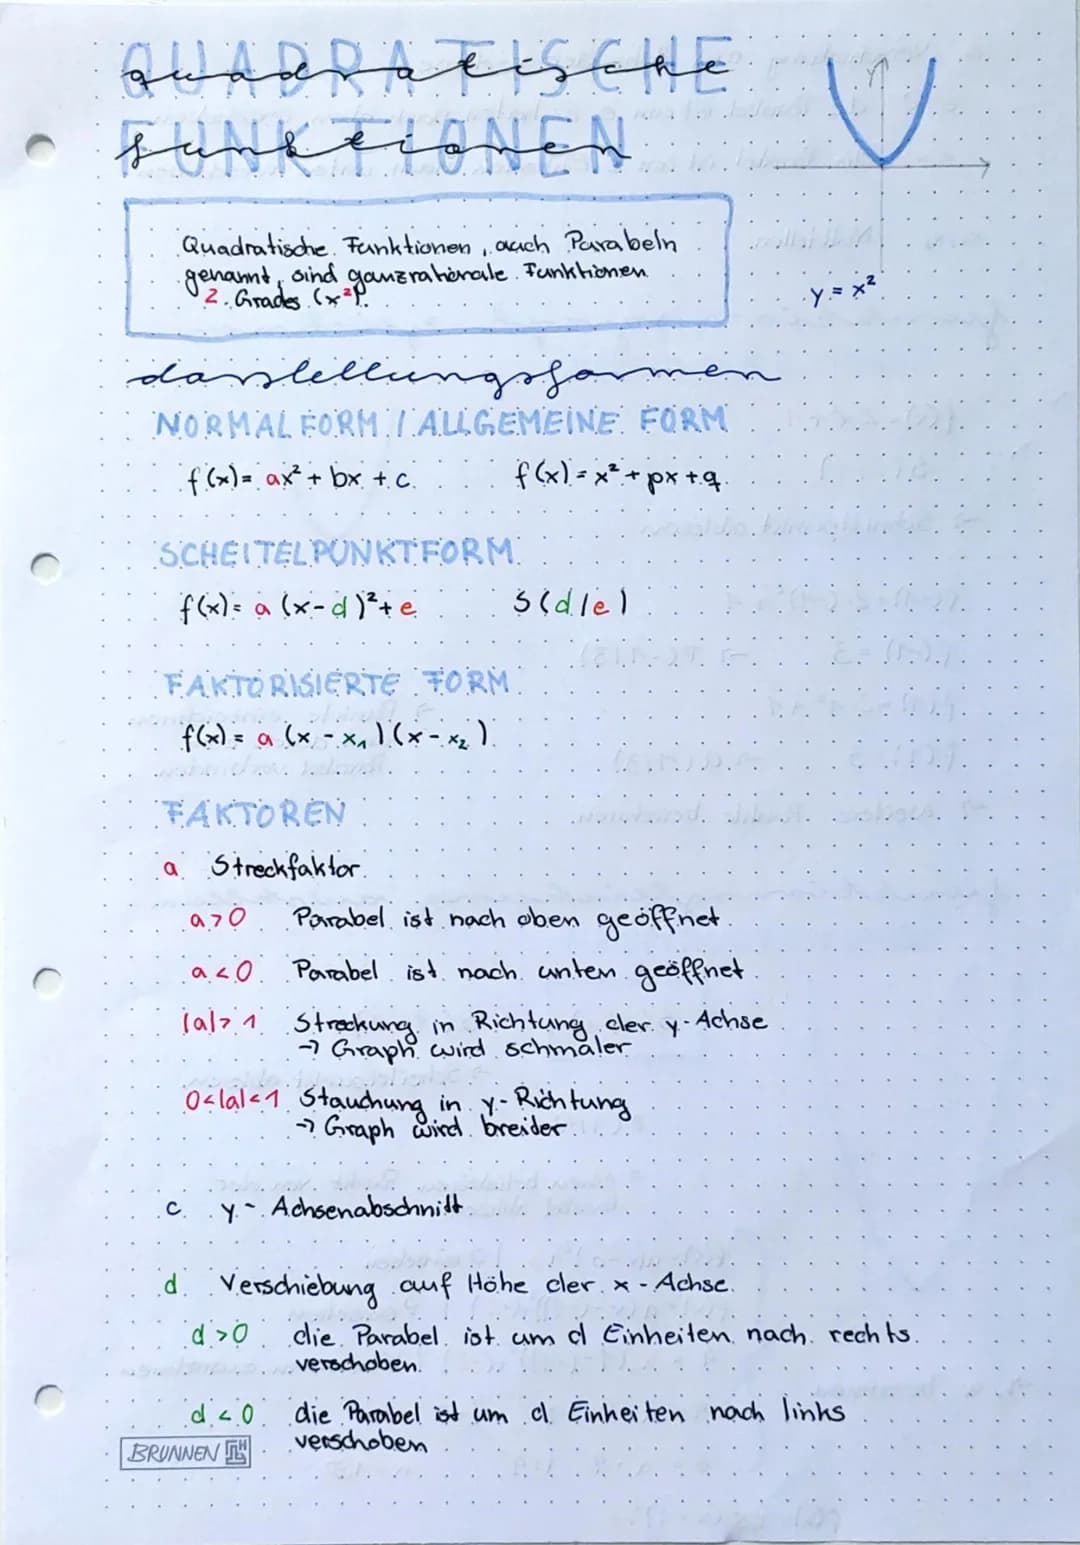 QUADRATISCHE
quadratische
FUNKTIONEN
funktionen
y = x²
Quadratische Funktionen, auch Parabeln
genannt, sind ganzrationale Funktionen
2. Grades (x²).
darstellungsformen
NORMALFORM / ALLGEMEINE FORM
f(x) = ax² + bx + c f(x) = x² + px + q
SCHEITELPUNKTFORM
f(x) = a (x - d)² + e S(d/e)
FAKTORISIERTE FORM
f(x) = a (x - x₁) (x - x₂)
FAKTOREN
a Streckfaktor
a > 0 Parabel ist nach oben geöffnet
a < 0 Parabel ist nach unten geöffnet
|a| > 1 Streckung in Richtung der y-Achse
→ Graph wird schmaler
0 < |a| < 1 Stauchung in y-Richtung
→ Graph wird breiter
c y-Achsenabschnitt
d Verschiebung auf Höhe der x-Achse
d > 0 die Parabel ist um d Einheiten nach rechts
verschoben
d < 0 die Parabel ist um d Einheiten nach links
verschoben
BRUNNEN